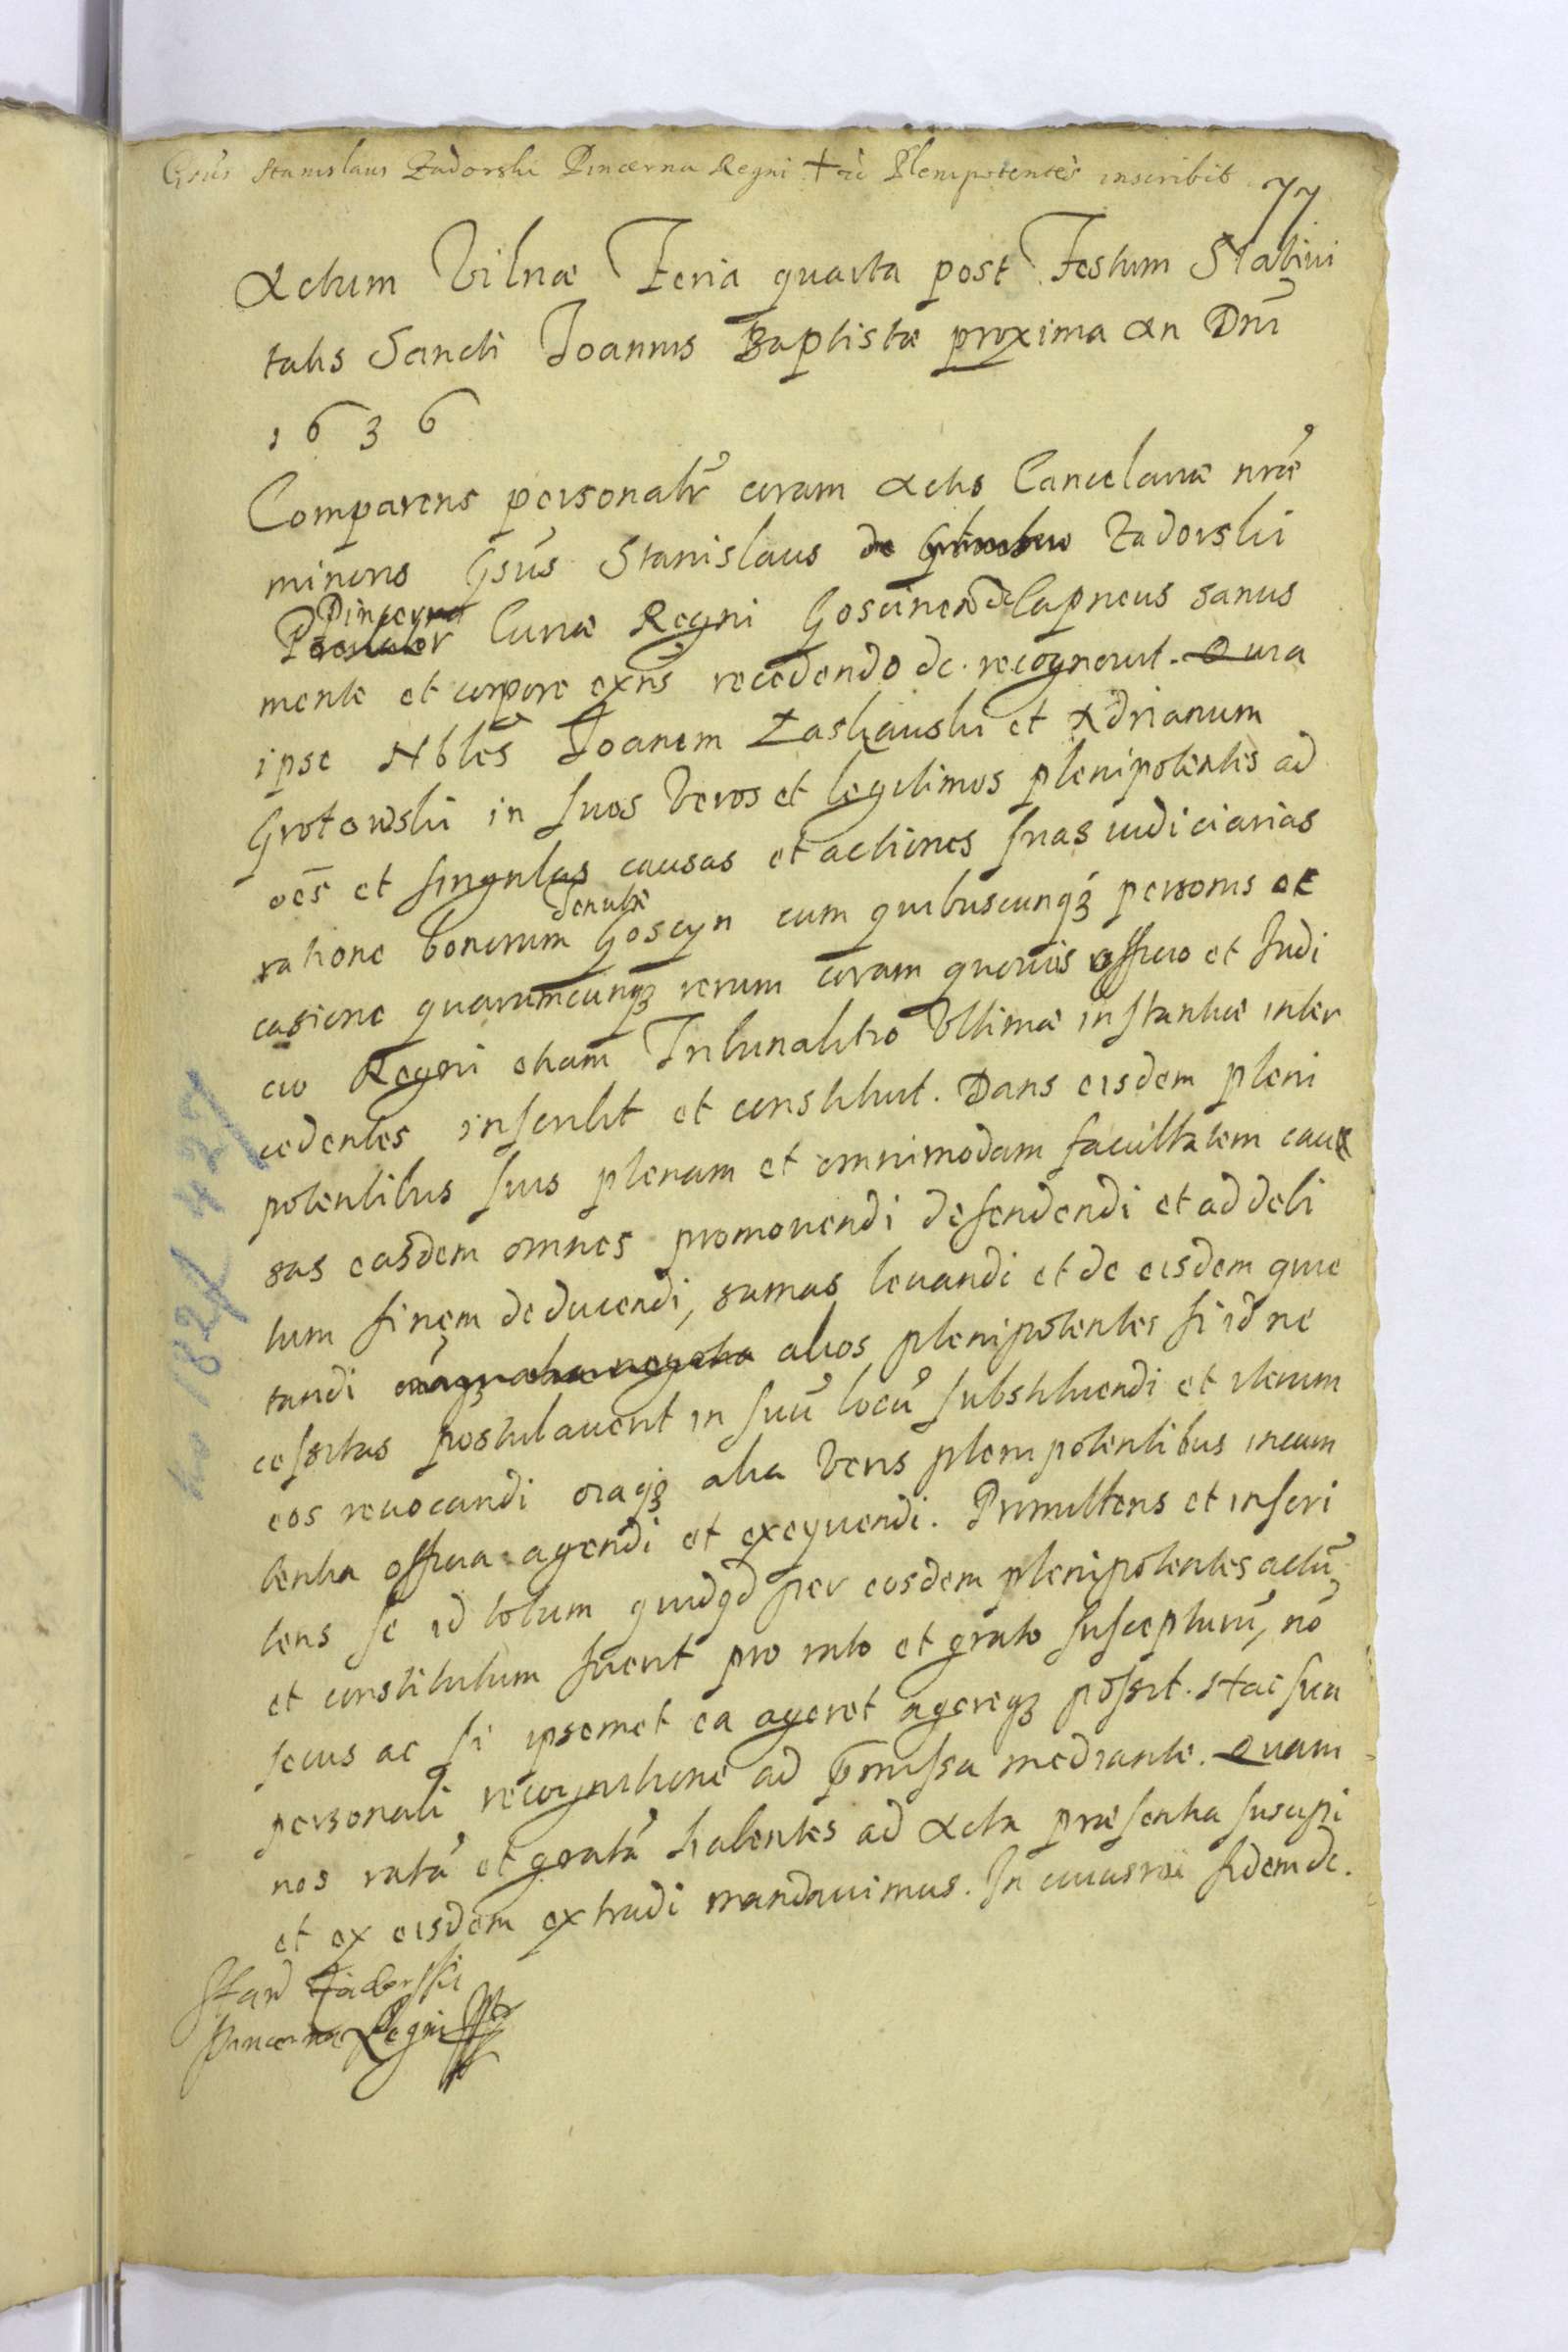 Gsus Stanislaus Zadorski Pincerna Regni Plenipotentes inscribit
77
Actum Vilnæ Feria quarta post Festum Natiui
tatis Sancti Joannis Baptistæ proxima An Dni
1636
Comparens personalr coram Actis Cancelariæ nræ
minoris Gsus Stanislaus de Zadorski
Pincerna
Curiæ Regni Goscinen &c Capneus sanus
mente et corpore exns recedendo &c. recognouit. Quia
ipse Nbles Joanem Zaskauski et Adrianum
Grotowski in suos veros et legitimos plenipotentes ad
oes et singulas causas et actiones suas iudiciarias
tenutæ
ratione bonorum Goscyn cum quibuscunqȝ personis oc
casione quarumcunqȝ rerum coram quouis officio et Judi
cio Regni etiam Tribunalitio Vltimæ instantiæ inter
cedentes inscribit et constituit. Dans eisdem pleni
potentibus suis plenam et omnimodam facultatem cau
sas easdem omnes promouendi defendendi et ad debi
tum finem deducendi, sumas leuandi et de eisdem quie
tandi alios plenipotentes si id ne
cessitas postulauerit in suū locū substituendi et iterum
eos reuocandi oiaqȝ alia veris plenipotentibus incum
bentia officia agendi et exequendi. Promittens et inscri
bens se id totum quidqd per eosdem plenipotentes actū
et constitutum fuerit pro rato et grato suscepturū, nō
secus ac si ipsemet ea ageret agereqȝ possit. Hac sua
personali recognitione ad præmissa mediante. Quam
nos ratā et gratā habentes ad Acta præsentia suscipi
et ex eisdem extradi mandauimus. In cuius rei fidem &c.
Stan Zadorski
Pincerna Regni
no 182 / 427